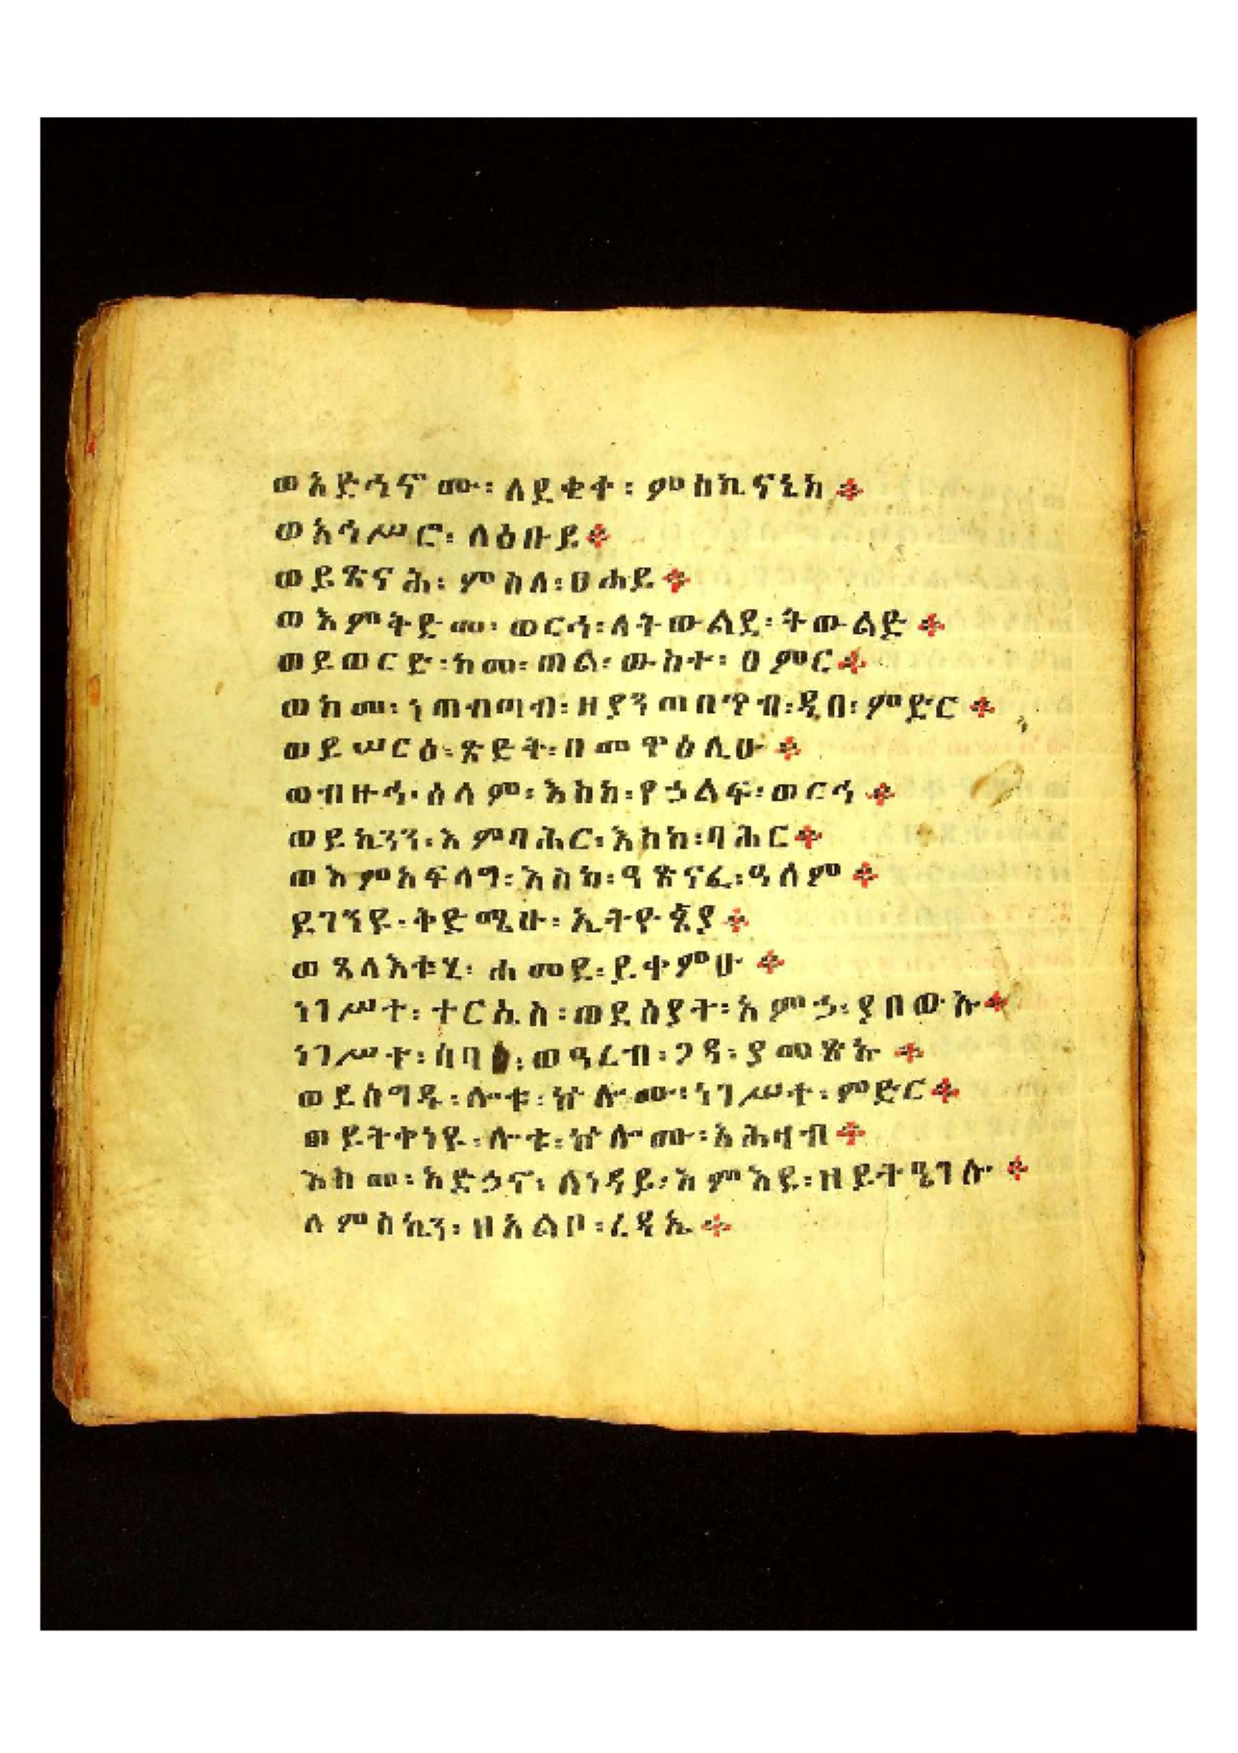 ወአድኅኖሙ፡ ለደቂቀ፡ ምስኪናኒከ።
ወአኅሥሮ፡ ለዕቡይ።
ወይጸናሕ፡ ምስለ፡ ፀሐይ።
ወእምቅድመ፡ ወርኅ፡ ለትውልደ፡ ትውልድ።
ወይወርድ፡ ከመ፡ ጠል፡ ውስተ፡ ፀምር።
ወከመ፡ ነጠብጣብ፡ ዘያንጠበጥብ፡ ዲበ፡ ምድር።
ወይሠርዕ፡ ጽድቅ፡ በመዋዕሊሁ።
ወብዙኅ፡ ሰላም፡ እስከ፡ የኃልፍ፡ ወርኅ።
ወይኴንን፡ እምባሕር፡ እስከ፡ ባሕር።
ወእምአፍላግ፡ እስከ፡ ዓጽናፈ፡ ዓለም።
ይገንዩ፡ ቅድሜሁ፡ ኢትዮጵያ።
ወጸላእቱሂ፡ ሐመደ፡ ይቀምሁ።
ነገሥተ፡ ተርሴስ፡ ወደሰያት፡ አምኃ፡ ያበውኡ።
ነገሥተ፡ ሳባ፡ ወዓረብ፡ ጋዳ፡ ያመጽኡ።
ወይሰግዱ፡ ሎቱ፡ ኵሎሙ፡ ነገሥተ፡ ምድር።
ወይትቀነዩ፡ ሎቱ፡ ኵሎሙ፡ አሕዛብ።
እስመ፡ አድኃኖ፡ ለነዳይ፡ እምእደ፡ ዘይትዔገሎ።
ለምስኪን፡ ዘአልቦ፡ ረዳኤ።